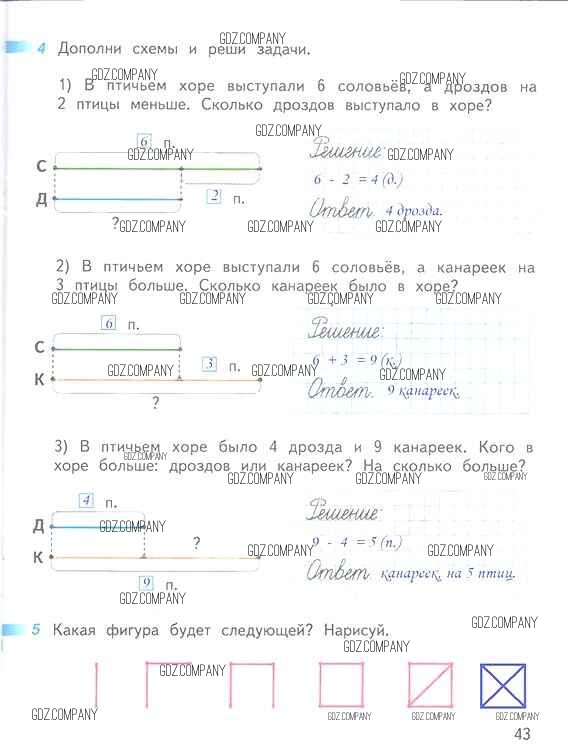 GDZ.COMPANY
4 Дополни схемы и реши задачи.
GDZ.COMPANY GDZ.COMPANY
1) В птичьем хоре выступали 6 соловьёв, а дроздов на
2 птицы меньше. Сколько дроздов выступало в хоре?
GDZ.COMPANY
6 п. Решение:
GDZ.COMPANY GDZ.COMPANY
С
6 - 2 = 4 (д.)
Д 2 п. Ответ. 4 дрозда.
? GDZ.COMPANY GDZ.COMPANY GDZ.COMPANY
2) В птичьем хоре выступали 6 соловьёв, а канареек на
3 птицы больше. Сколько канареек было в хоре?
GDZ.COMPANY GDZ.COMPANY GDZ.COMPANY GDZ.COMPANY
6 п. Решение:
С
3 п. 6 + 3 = 9 (к.)
К GDZ.COMPANY GDZ.COMPANY GDZ.COMPANY
? Ответ. 9 канареек.
3) В птичьем хоре было 4 дрозда и 9 канареек. Кого в
GDZ.COMPANY
хоре больше: дроздов или канареек? На сколько больше?
GDZ.COMPANY GDZ.COMPANY GDZ.COMPANY
4 п. Решение:
Д GDZ.COMPANY
? 9 - 4 = 5 (п.)
К GDZ.COMPANY GDZ.COMPANY
9 п. Ответ. канареек, на 5 птиц.
GDZ.COMPANY
5 Какая фигура будет следующей? Нарисуй.
GDZ.COMPANY
GDZ.COMPANY
GDZ.COMPANY
GDZ.COMPANY GDZ.COMPANY GDZ.COMPANY GDZ.COMPANY
43